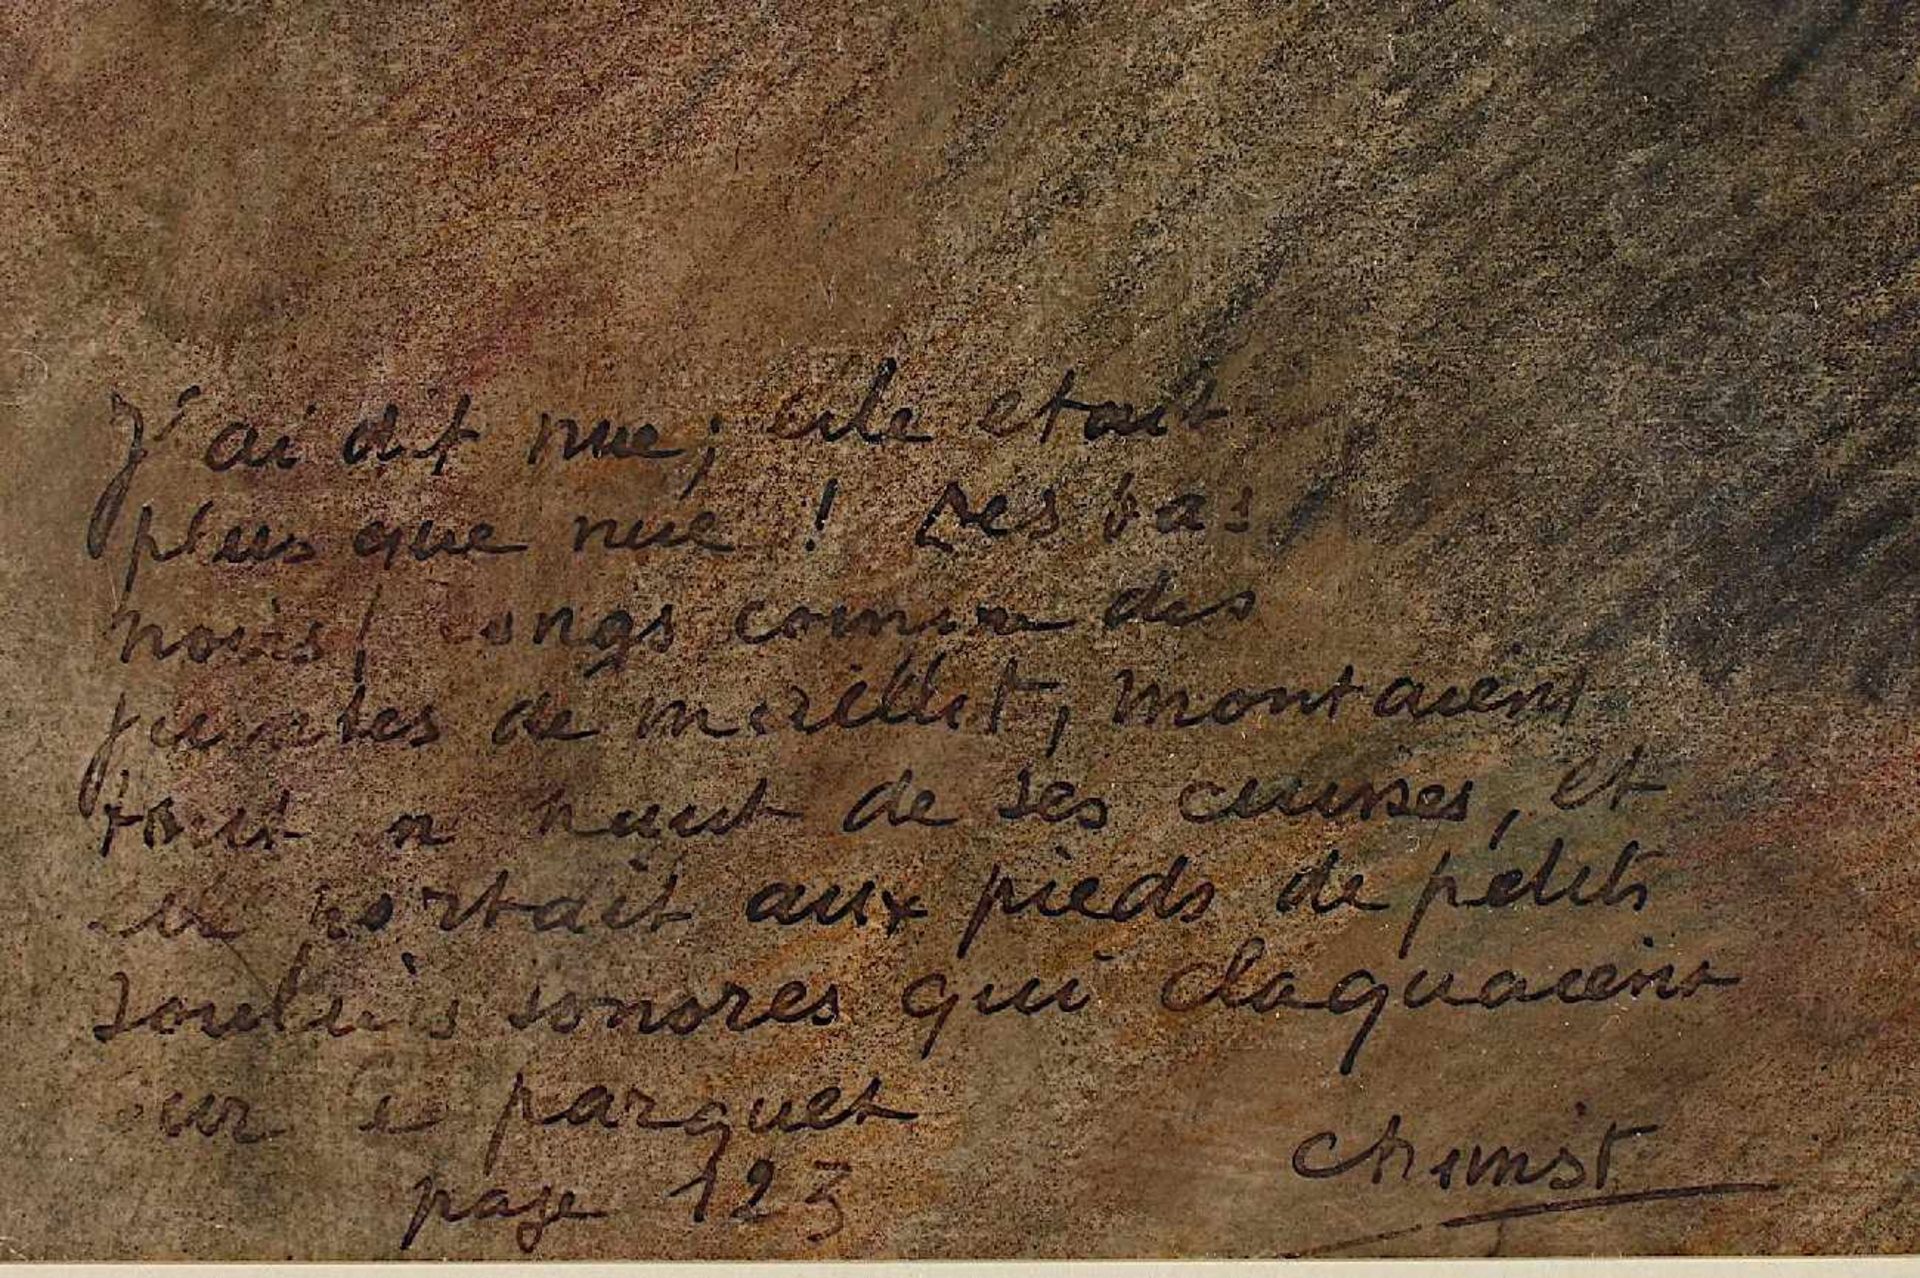 J'ai dit nue; elle etait
plus que nue ! Des bas
noirs, longs comme des
jambes de maillot, montaient
tout en haut de ses cuisses, et
elle portait aux pieds de petits
souliers sonores qui claquaient
sur le parquet
page 123